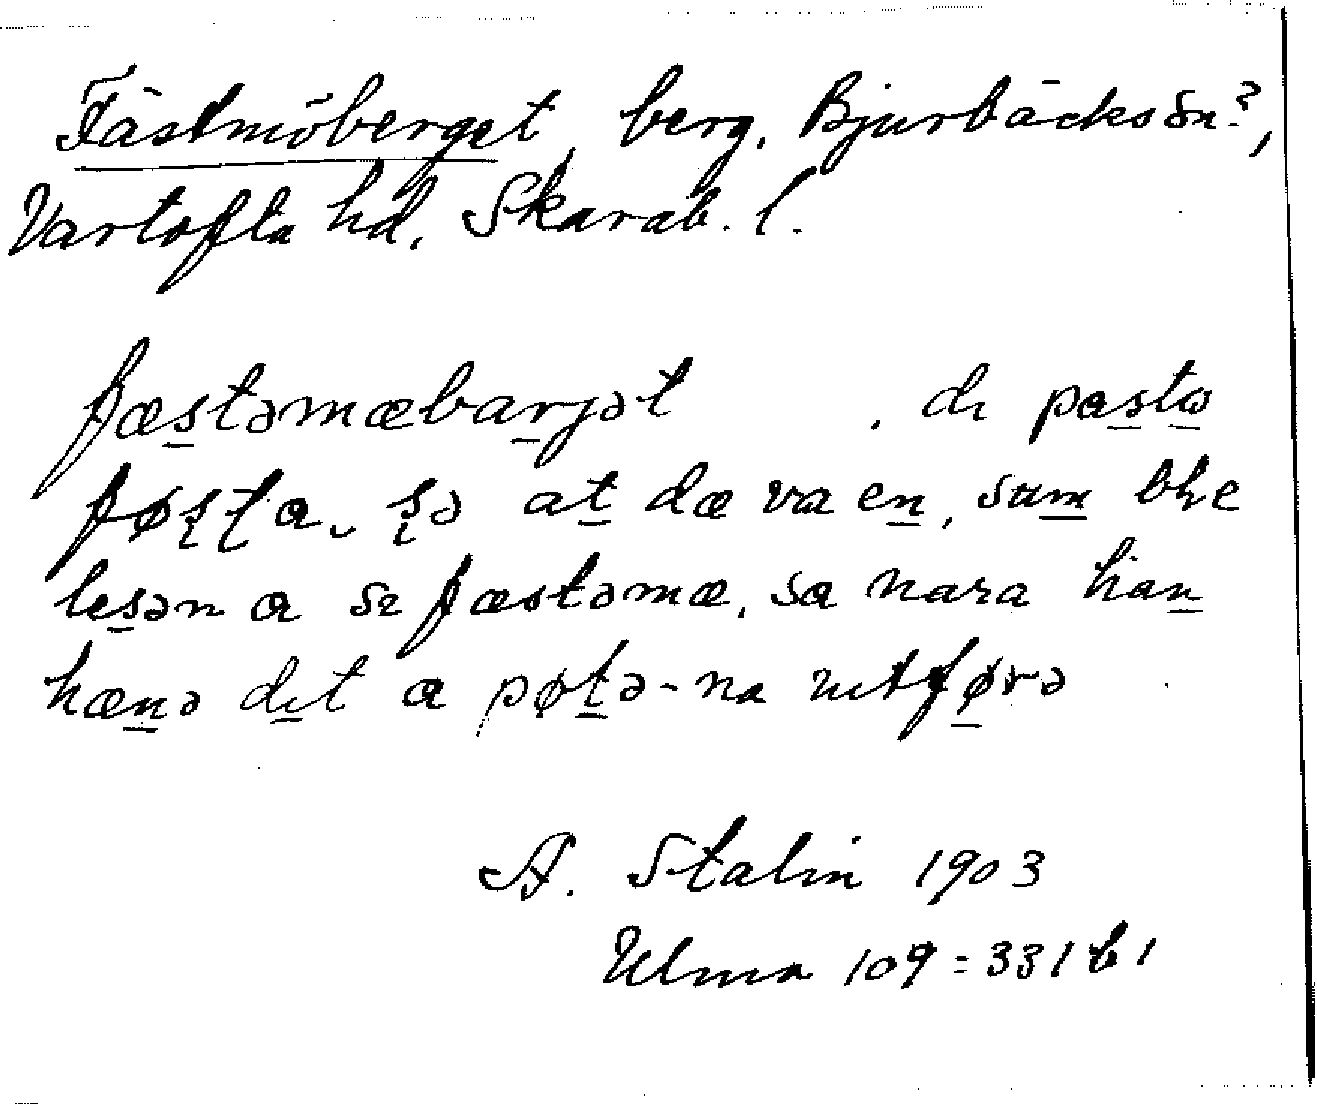 Fästmöberget, berg, Bjurbäcks sn?,
Vartofta hd, Skarab. l.
fæstəmæbarjət . dı pasto
føʂʈa, ʂə at dæ va en, sum ble
lesən a se fæstəmæ, sa nara han
hænə dıt a pøtə-na utførə
A. Stalin 1903
Ulma 109:331 b 1